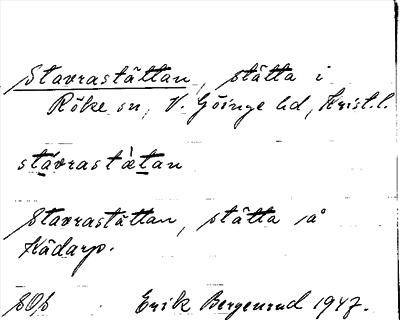 Stavrastättan, stätta i
Röke sn, V. Göinge hd, Krist.l.
stávrastὰtan
Stavrastättan, stätta å
Kädarp.
Erik Bergenrud 1947.